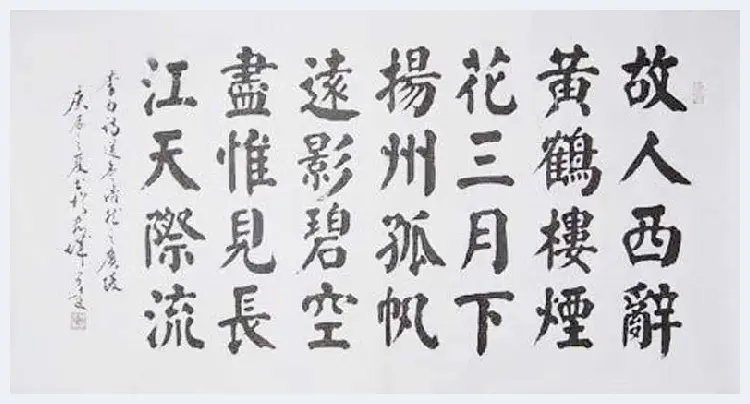 故人西辭
黃鶴樓煙
花三月下
揚州孤帆
遠影碧空
盡惟見長
江天際流
李白詩送孟浩然之廣陵
庚辰之夏